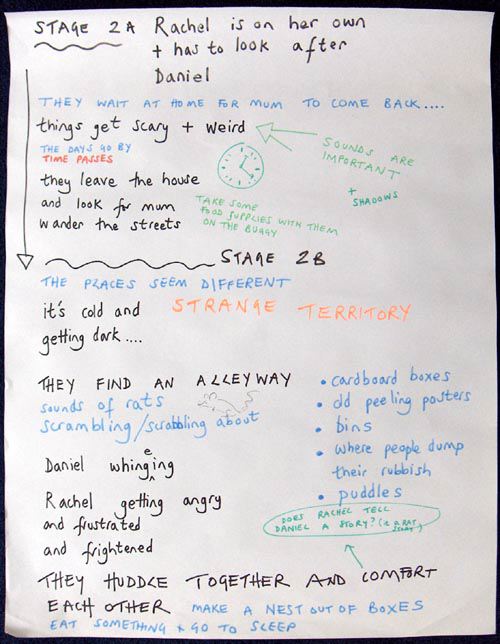 STAGE 2A Rachel is on her own
+ has to look after
Daniel
THEY WAIT AT HOME FOR MUM TO COME BACK....
things get scary + weird
SOUNDS ARE
IMPORTANT
+
SHADOWS
THE DAYS GO BY
TIME PASSES
they leave the house
and look for mum
wander the streets
TAKE SOME
FOOD SUPPLIES WITH THEM
ON THE BUGGY
STAGE 2B
THE PLACES SEEM DIFFERENT
it's cold and
getting dark....
STRANGE TERRITORY
THEY FIND AN ALLEYWAY
sounds of rats
scrambling/scrabbling about
• cardboard boxes
• old peeling posters
• bins
• where people dump
their rubbish
• puddles
Daniel whingeing
Rachel getting angry
and frustrated
and frightened
DOES RACHEL TELL
DANIEL A STORY? (is a RAT
story)
THEY HUDDLE TOGETHER AND COMFORT
EACH OTHER MAKE A NEST OUT OF BOXES
EAT SOMETHING + GO TO SLEEP